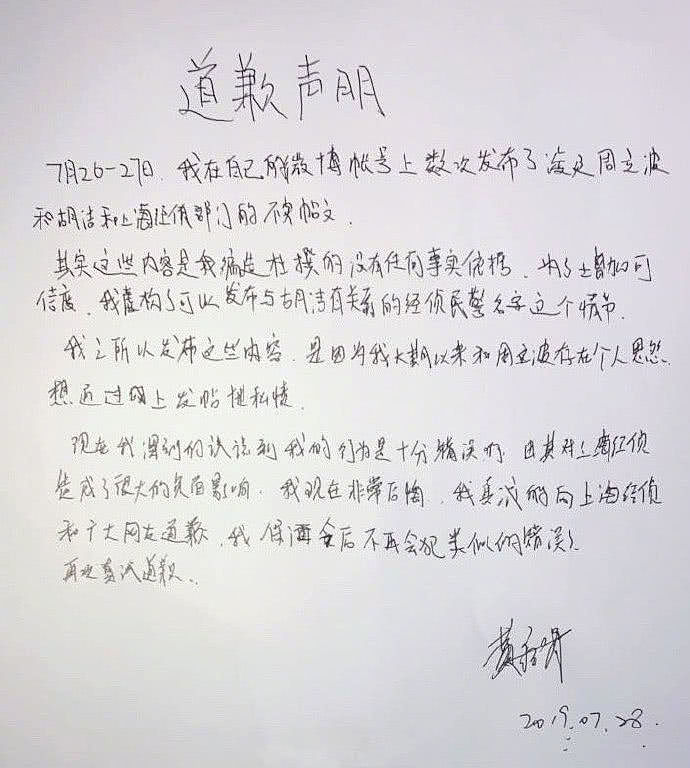 道歉声明
7月26-27日,我在自己的微博帐号上数次发布了涉及周立波
和胡洁和上海经侦部门的不实帖文.
其实这些内容是我编造杜撰的没有任何事实依据,为了增加可
信度,我虚构了可以发布与胡洁有关系的经侦民警名字这个情节.
我之所以发布这些内容,是因为我长期以来和周立波存在个人恩怨.
想通过网上发帖泄私愤.
现在我深刻的认识到我的行为是十分错误的,尤其对上海经侦
造成了很大的负面影响.我现在非常后悔,我真诚的向上海经侦
和广大网友道歉,我保证今后不再会犯类似的错误.
再次真诚道歉.
2019.07.28.